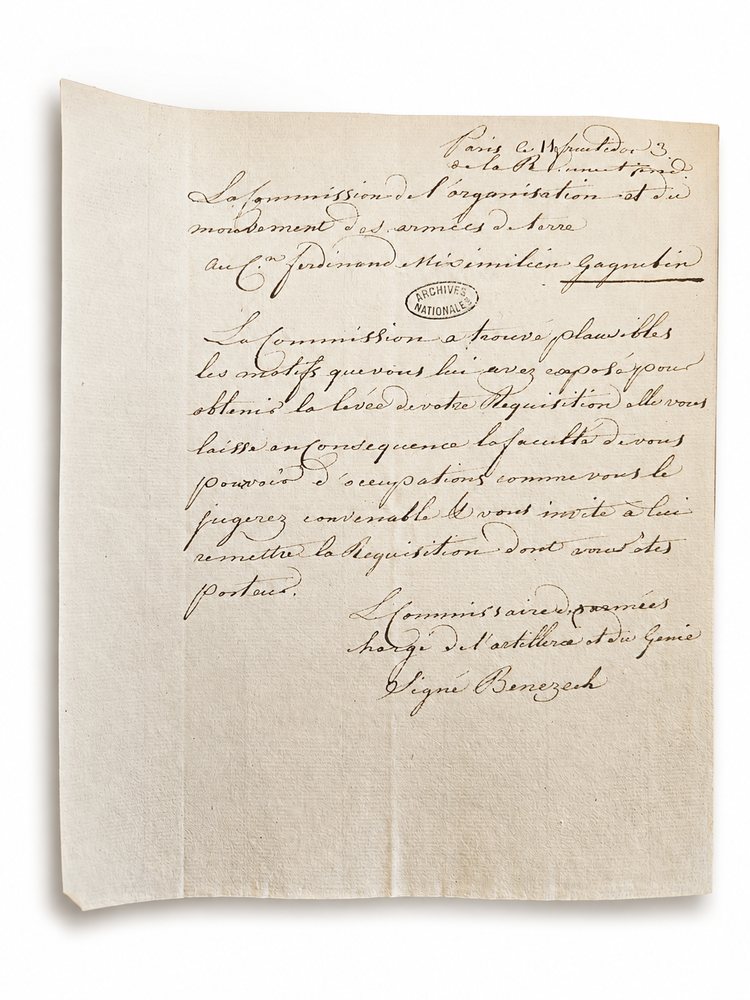 Paris le 11 fructidor 3
de la R. une et ind.
La Commission de l'organisation et du
mouvement des armées de terre
au C.en ferdinand Miximilien Gagnebin
ARCHIVES NATIONALES
La Commission a trouvé plausibles
les motifs que vous lui avez exposé pour
obtenir la levée de votre Requisition elle vous
laisse en Consequence la faculté de vous
pourvoir d'occupations comme vous le
jugerez convenable & vous invite à lui
remettre la Requisition dont vous etes
porteur.
L Commissaire des armées
chargé de l'artillerie et du Genie
Signé Benezech